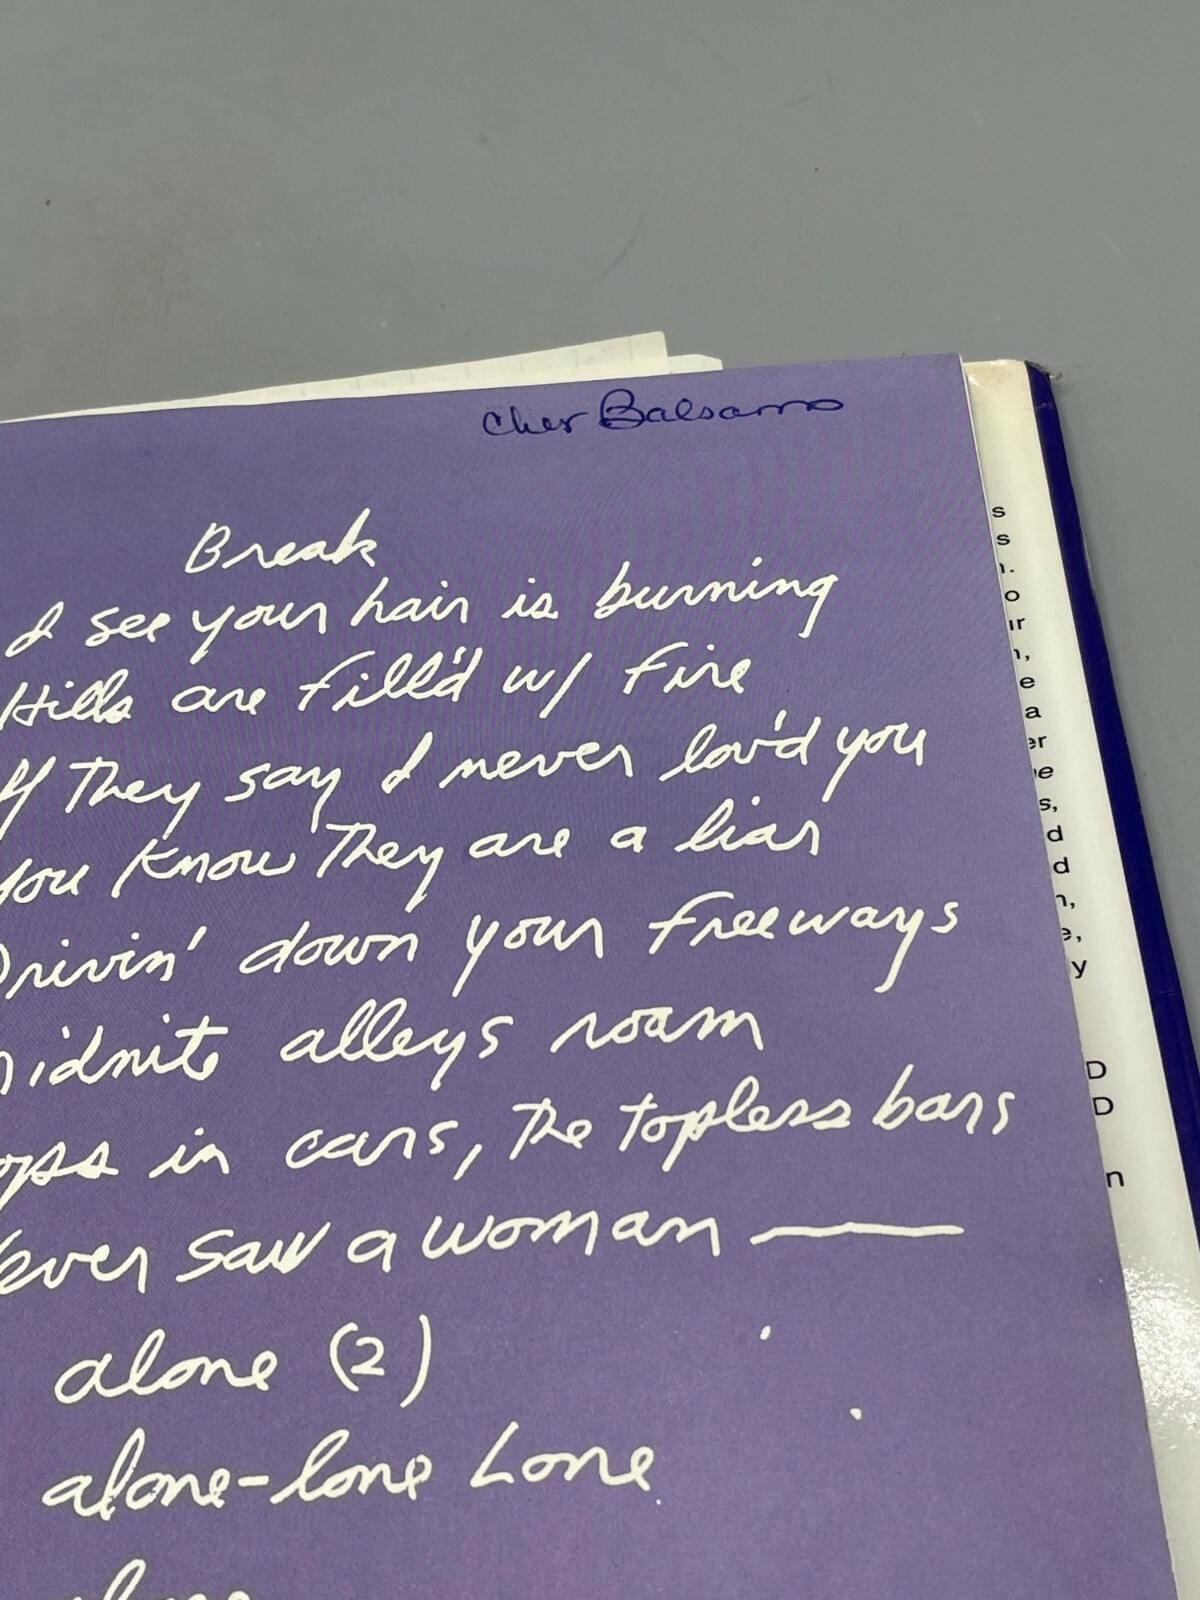 Cher Balsamo
Break
I see your hair is burning
Hills are fill'd w/ fire
If they say I never lov'd you
You know they are a liar
Drivin' down your freeways
Midnite alleys roam
in cars, the topless bars
Never saw a woman —
alone (2)
alone-lone Lone
s
s
n.
o
ir
n,
e
a
er
e
s,
d
d
n,
e,
y
D
D
n